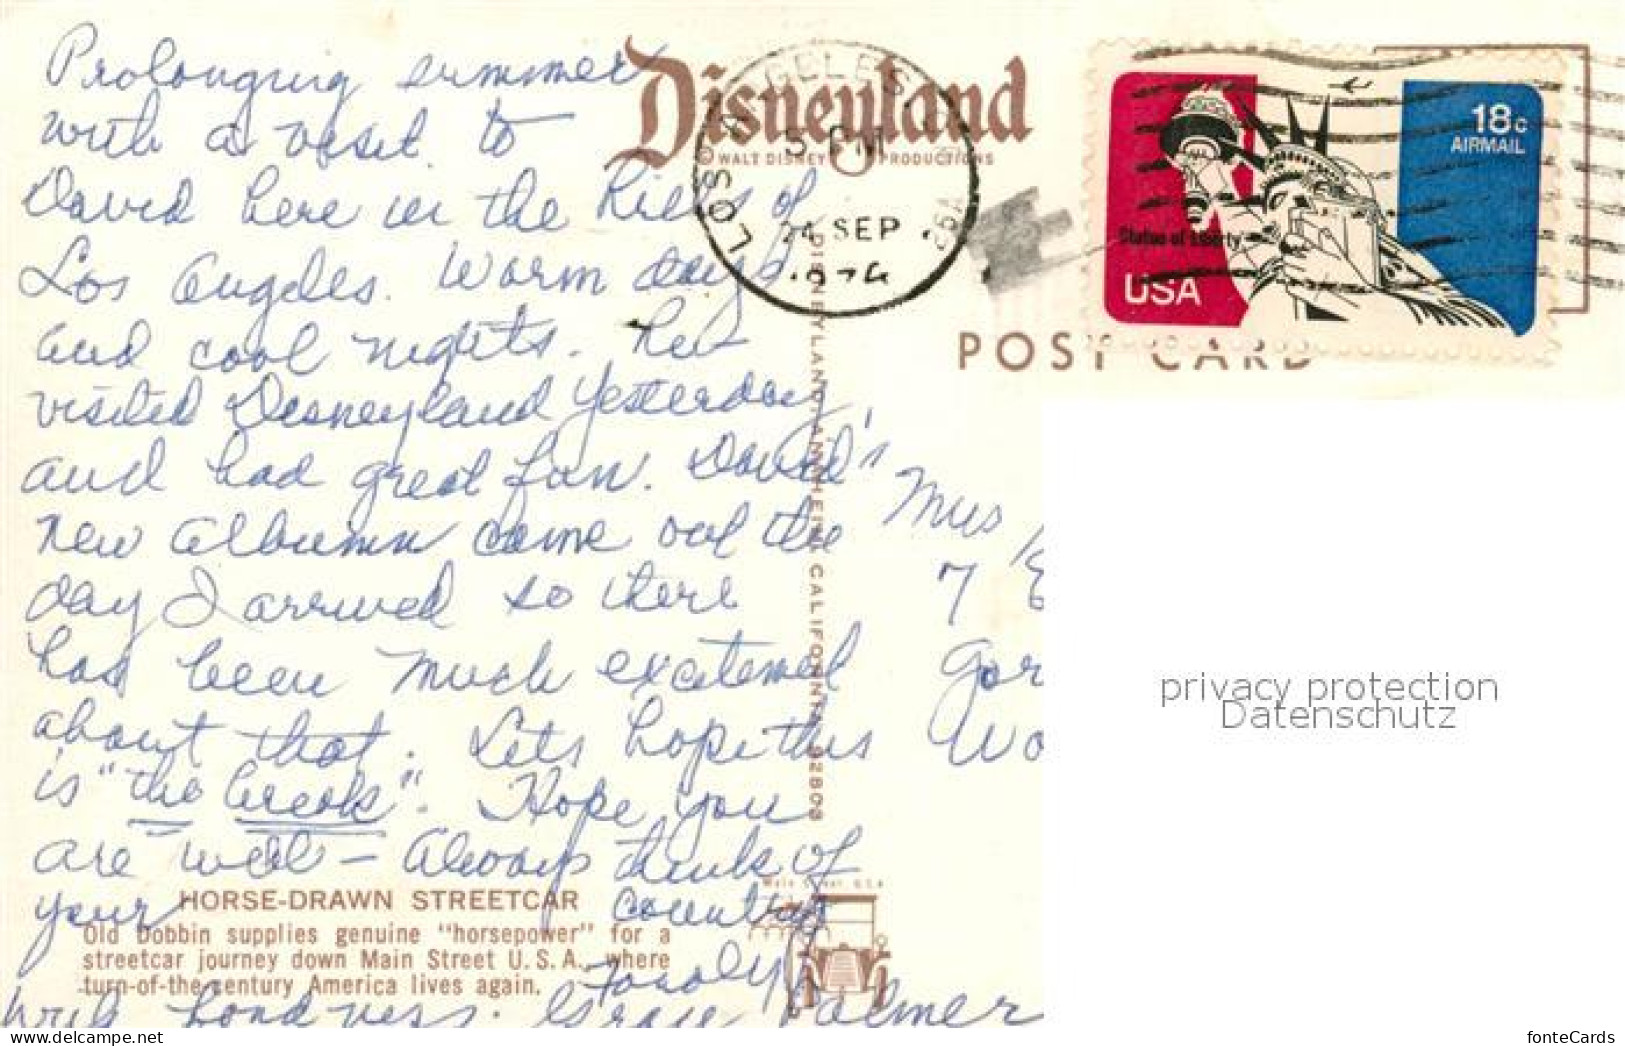 Prolonging summer
with a visit to
David here in the hills of
Los Angeles. Warm days
and cool nights. We
visited Disneyland yesterday,
and had great fun. David's
new album came out the
day I arrived so there
has been much excitement
about that. Lets hope this
is "the break". Hope you
are well — Always think of
your country
fondly
with fondness. Grace Palmer
Disneyland
© WALT DISNEY PRODUCTIONS
LOS ANGELES, CA
5 PM
24 SEP
1974
18c
AIRMAIL
Statue of Liberty
USA
POST CARD
DISNEYLAND, ANAHEIM, CALIFORNIA 92803
Mrs
7
Gor
Wo
privacy protection
Datenschutz
HORSE-DRAWN STREETCAR
Old Dobbin supplies genuine "horsepower" for a
streetcar journey down Main Street U.S.A., where
turn-of-the-century America lives again.
Main Street U.S.A.
fonteCards